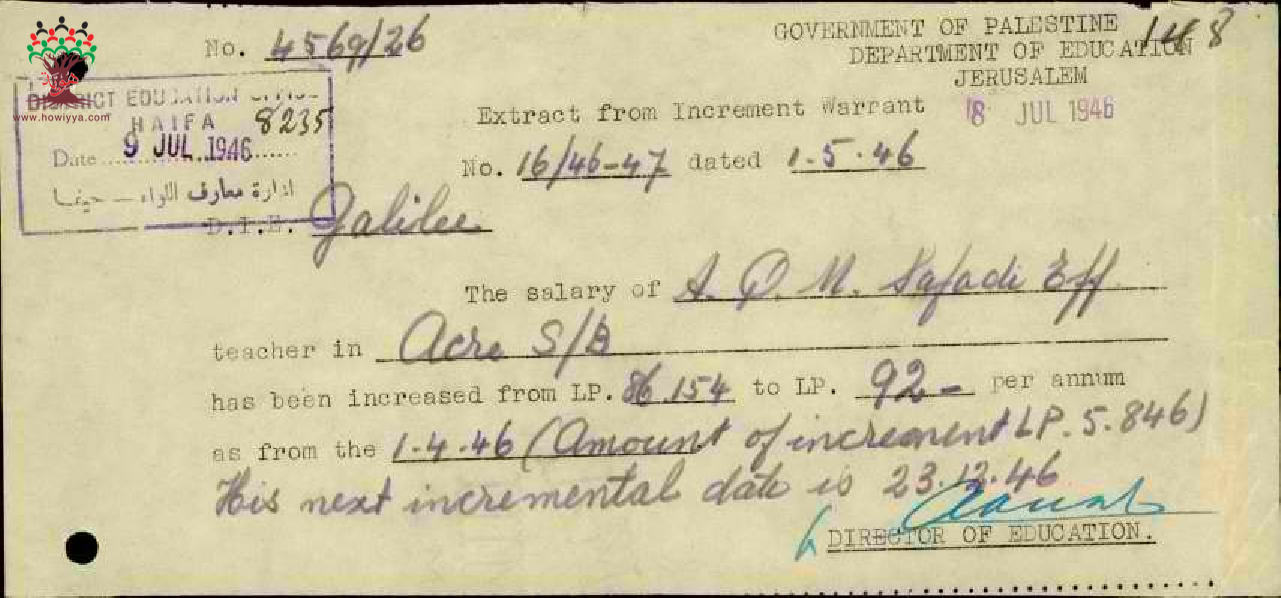 No. 4569/26
GOVERNMENT OF PALESTINE 148
DEPARTMENT OF EDUCATION
JERUSALEM
www.howiyya.com
DISTRICT EDUCATION OFFICE
HAIFA 8235
Date 9 JUL 1946
ادارة معارف اللواء — حيفا
Extract from Increment Warrant 8 JUL 1946
No. 16/46-47 dated 1.5.46
D.I.E. Galilee
The salary of A. Q. M. Safadi Eff
teacher in Acre S/B
has been increased from LP. 86.154 to LP. 92— per annum
as from the 1.4.46 (Amount of increment LP. 5.846)
His next incremental date is 23.12.46
DIRECTOR OF EDUCATION.